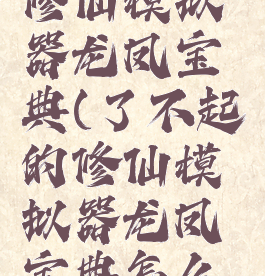 修仙模拟
器龙凤宝
典(了不起
的修仙模
拟器龙凤
宝典怎么